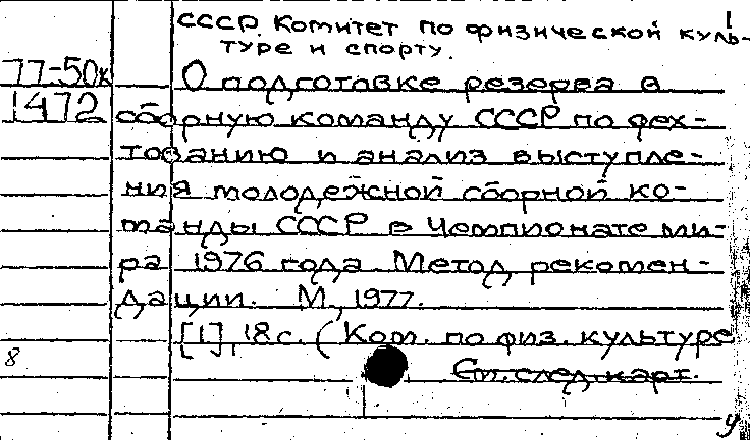 1
СССР. Комитет по физической куль-
туре и спорту.
77-50к О подготовке резерва в
1472 сборную команду СССР по фех-
тованию и анализ выступле-
ния молодежной сборной ко-
манды СССР в Чемпионате ми-
ра 1976 года. Метод. рекомен-
дации. М., 1977.
[1], 18 с. (Ком. по физ. культуре
8
См. след. карт.
у